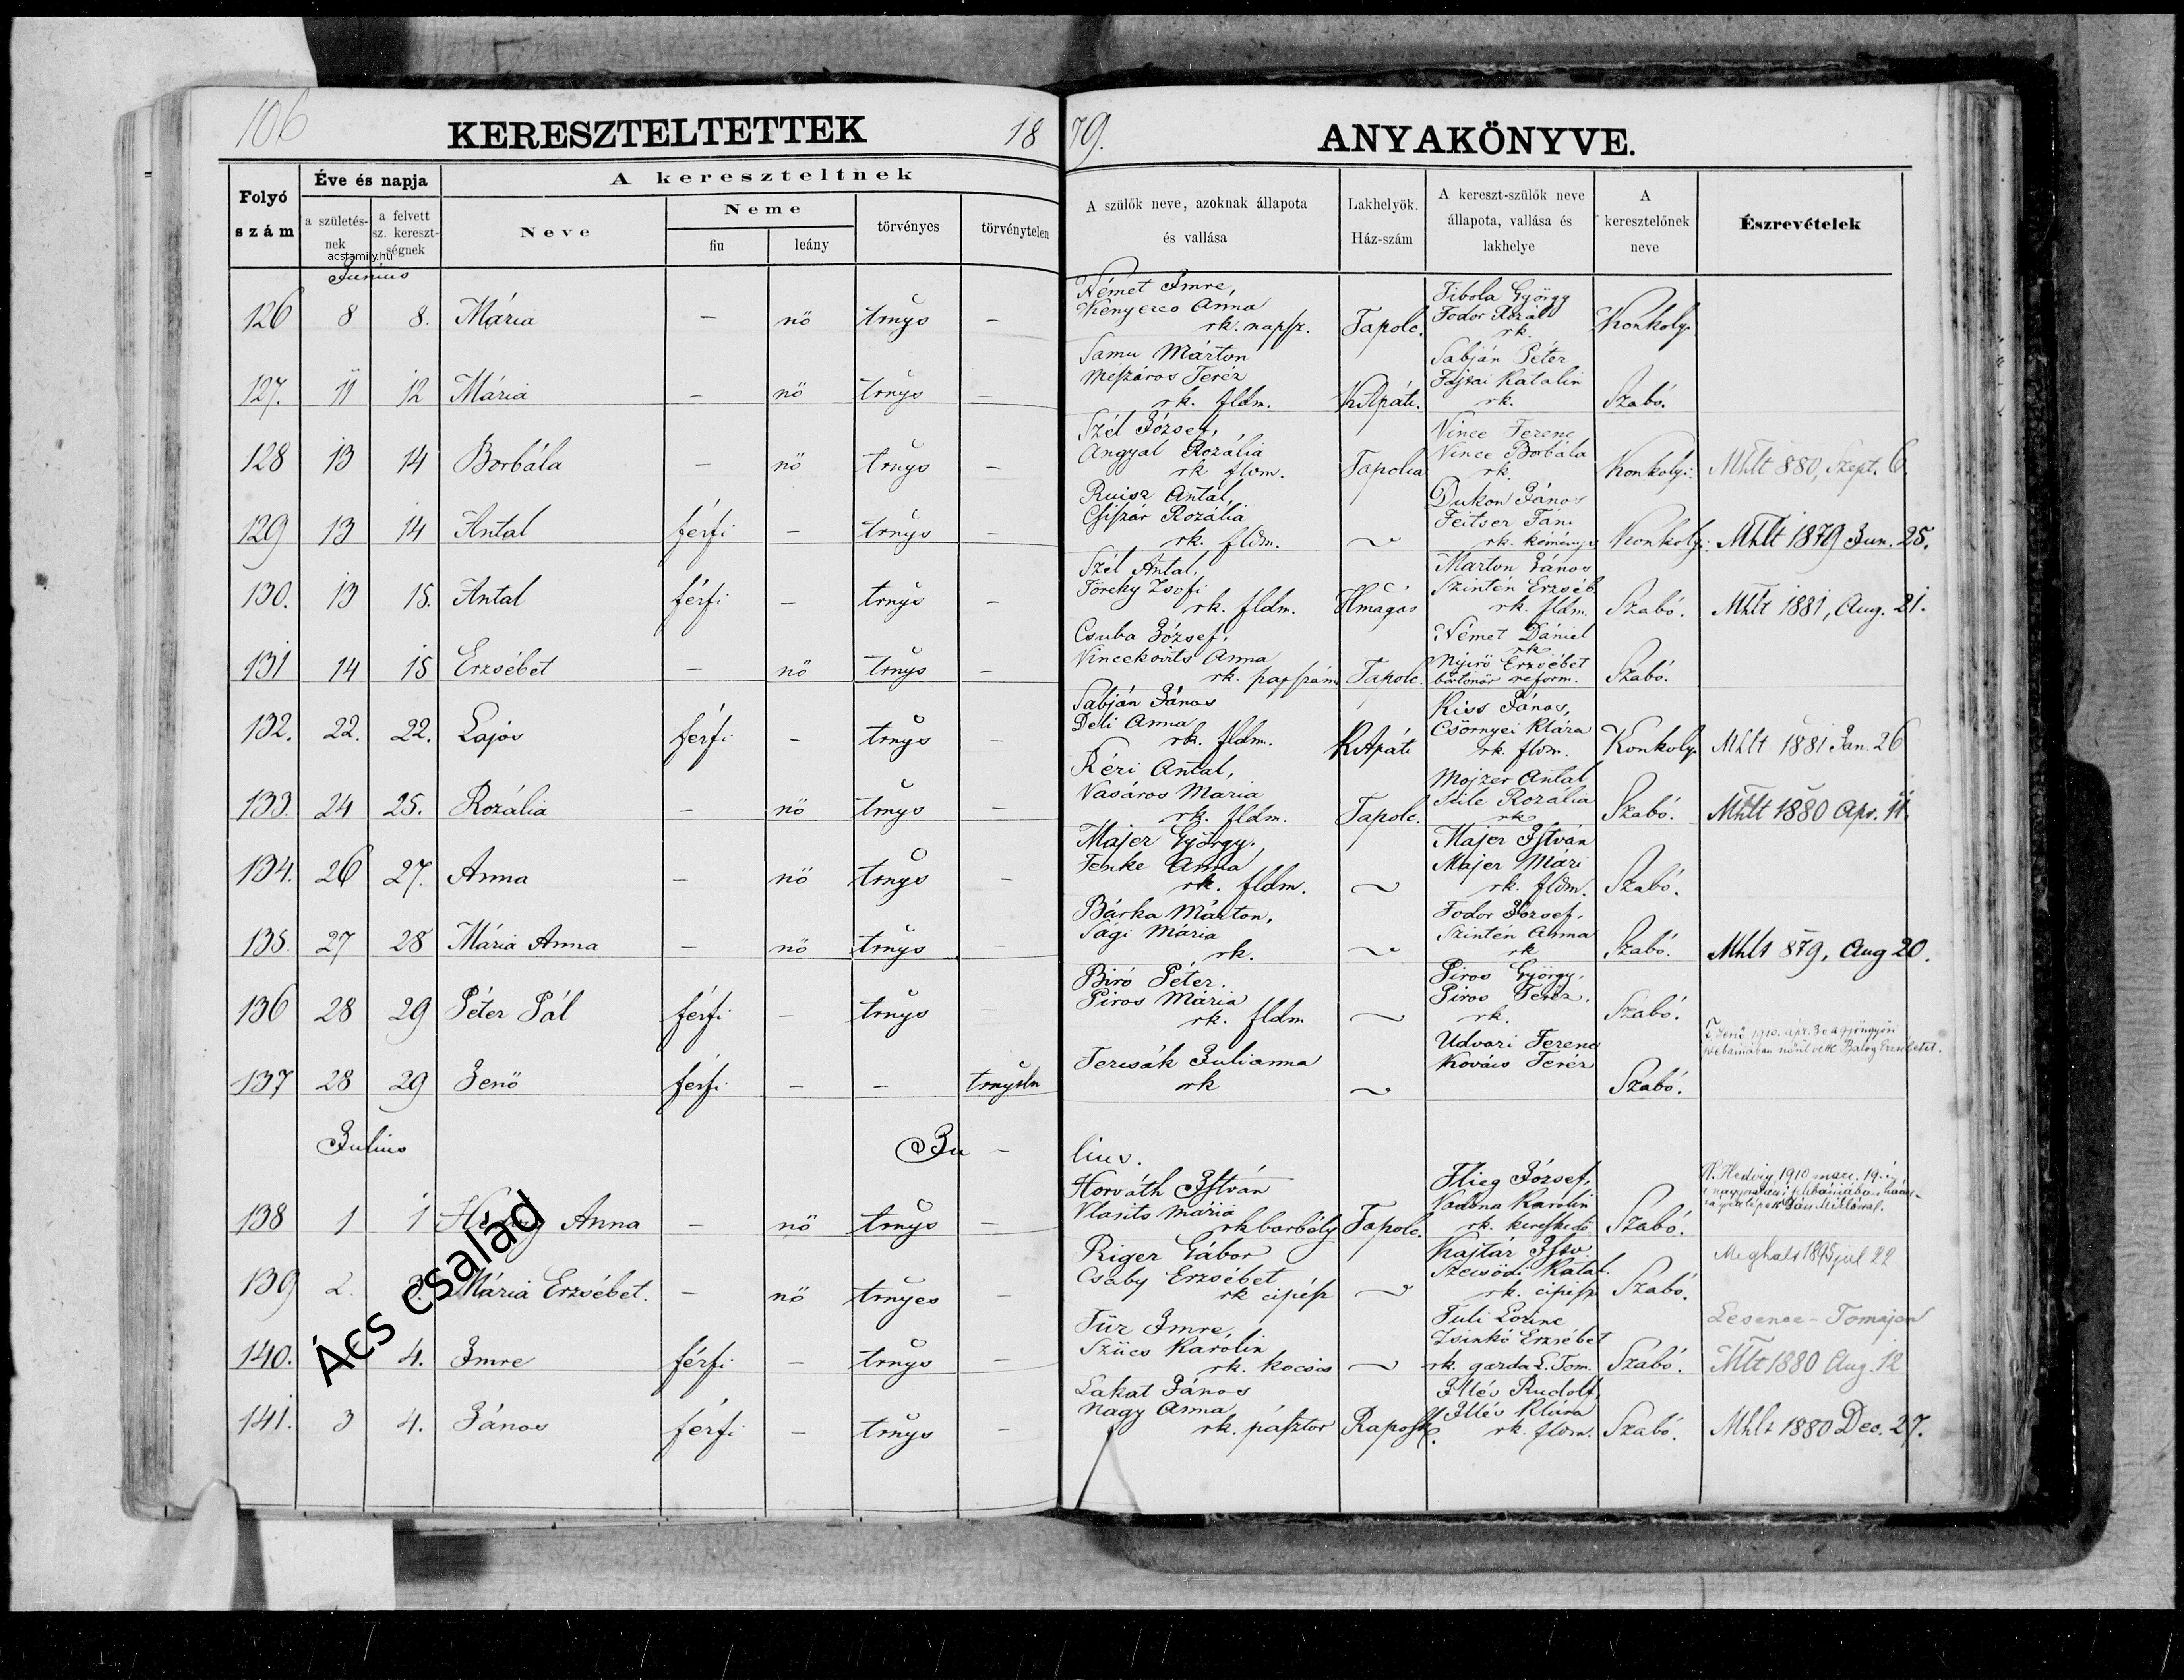 106
KERESZTELTETTEK
18
79.
ANYAKÖNYVE.
Folyó
szám
Éve és napja
a születés-
nek
a felvett
sz. kereszt-
ségnek
acsfamily.hu
A kereszteltnek
Neve
Neme
fiu
leány
törvényes
törvénytelen
A szülők neve, azoknak állapota
és vallása
Lakhelyök.
Ház-szám
A kereszt-szülők neve
állapota, vallása és
lakhelye
A
keresztelőnek
neve
Észrevételek
Junius
126 8 8. Mária – nő trnys –
Német Imre,
Anna
rk. napsz.
Tapolc.
Tibola György
Fodor Rozál
rk.
Konkoly.
127. 11 12 Mária – nő trnys –
Samu Márton
Mészáros Teréz
rk. fldm.
KApáti.
Sabján Péter
Katalin
rk.
Szabó.
128 13 14 Borbála – nő trnys –
Szél József,
Angyal Rozália
rk fldm.
Tapolca
Vince Ferenc
Vince Borbála
rk.
Konkoly:
Mhlt 880, Szept. 6.
129 13 14 Antal férfi – trnys –
Ruisz Antal,
Csiszár Rozália
rk. fldm.
~
Dukon János
Feitser Fáni
rk.
Konkoly:
Mhlt 1879 Jun. 25.
130. 13 15. Antal férfi – trnys –
Szél Antal,
Töreky Zsofi
rk. fldm.
Hmagas
Marton János
Szintén Erzséb
rk. fldm.
Szabó.
Mhlt 1881, Aug. 21.
131 14 15 Erzsébet – nő trnys –
Csuba József,
Vincekovits Anna
rk.
Tapolc.
Német Dániel
rk
Nyirő Erzsébet
börtönőr reform.
Szabó.
132. 22. 22. Lajos férfi – trnys –
Sabján János
Deli Anna
rk. fldm.
KApáti
Kiss János,
Csörnyei Klára
rk. fldm.
Konkoly.
Mhlt 1881 Jan. 26
133. 24 25. Rozália – nő trnys –
Kéri Antal,
Vasáros Maria
rk. fldm.
Tapolc.
Mojzer Antal
Rozália
rk
Szabó.
Mhlt 1880 Apr. 11.
134. 26 27. Anna – nő trnys –
Majer György,
Fenke Anna
rk. fldm.
~
Majer István
Majer Mári
rk. fldm.
Szabó.
135. 27 28 Mária Anna – nő trnys –
Bárka Márton,
Sági Mária
rk.
~
Fodor József,
Szintén Anna
rk
Szabó.
Mhlt 879, Aug 20.
136 28 29 Péter Pál férfi – trnys –
Biró Péter.
Piros Mária
rk. fldm
~
Piros György,
Piros Teréz.
rk.
Szabó.
137 28 29 Jenő férfi – – trnystln
Tercsák Julianna
rk
~
Udvari Ferenc
Kovács Teréz
Szabó.
Jenő 1910. ápr. 30 a gyöngyösi
plebániában nőül vette Balog Erzsébetet.
Julius
Ju –
lius.
138 1 1 Anna – nő trnys –
Horváth István
Vlasits Mária
rk borbély
Tapolc.
Flieg József,
Vadona Karolin
rk. kereskedő
Szabó.
Hedvig, 1910 marc. 19. én
139 2. 3. Mária Erzsébet. – nő trnyes –
Riger Gábor
Csaby Erzsébet
rk cipész
~
Kajtár Istv.
Szecsődi Katal.
rk. cipész
Szabó.
Meghalt 1895 jul 22
140. 4. Imre férfi – trnys –
Für Imre,
Szücs Karolin
rk. kocsis
~
Tuli Lőrinc
Zsinkó Erzsébet
rk. gazda L. Tom.
Szabó.
Lesence-Tomajon
Mlt 1880 Aug. 12
141. 3 4. János férfi – trnys –
Lakat János
Nagy Anna
rk. pásztor
Raposk.
Illés Rudolf
Illés Klára
rk. fldm.
Szabó.
Mhlt 1880 Dec. 27.
Ács család